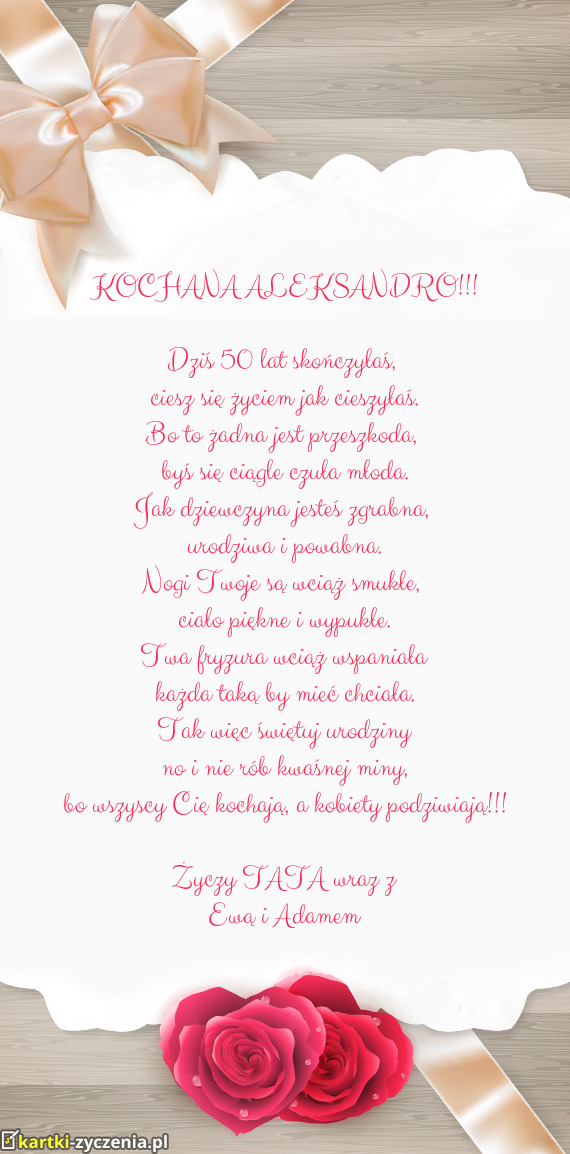 KOCHANA ALEKSANDRO!!!
Dziś 50 lat skończyłaś,
ciesz się życiem jak cieszyłaś.
Bo to żadna jest przeszkoda,
byś się ciągle czuła młoda.
Jak dziewczyna jesteś zgrabna,
urodziwa i powabna.
Nogi Twoje są wciąż smukłe,
ciało piękne i wypukłe.
Twa fryzura wciąż wspaniała
każda taką by mieć chciała.
Tak więc świętuj urodziny
no i nie rób kwaśnej miny,
bo wszyscy Cię kochają, a kobiety podziwiają!!!
Życzy TATA wraz z
Ewą i Adamem
kartki-zyczenia.pl